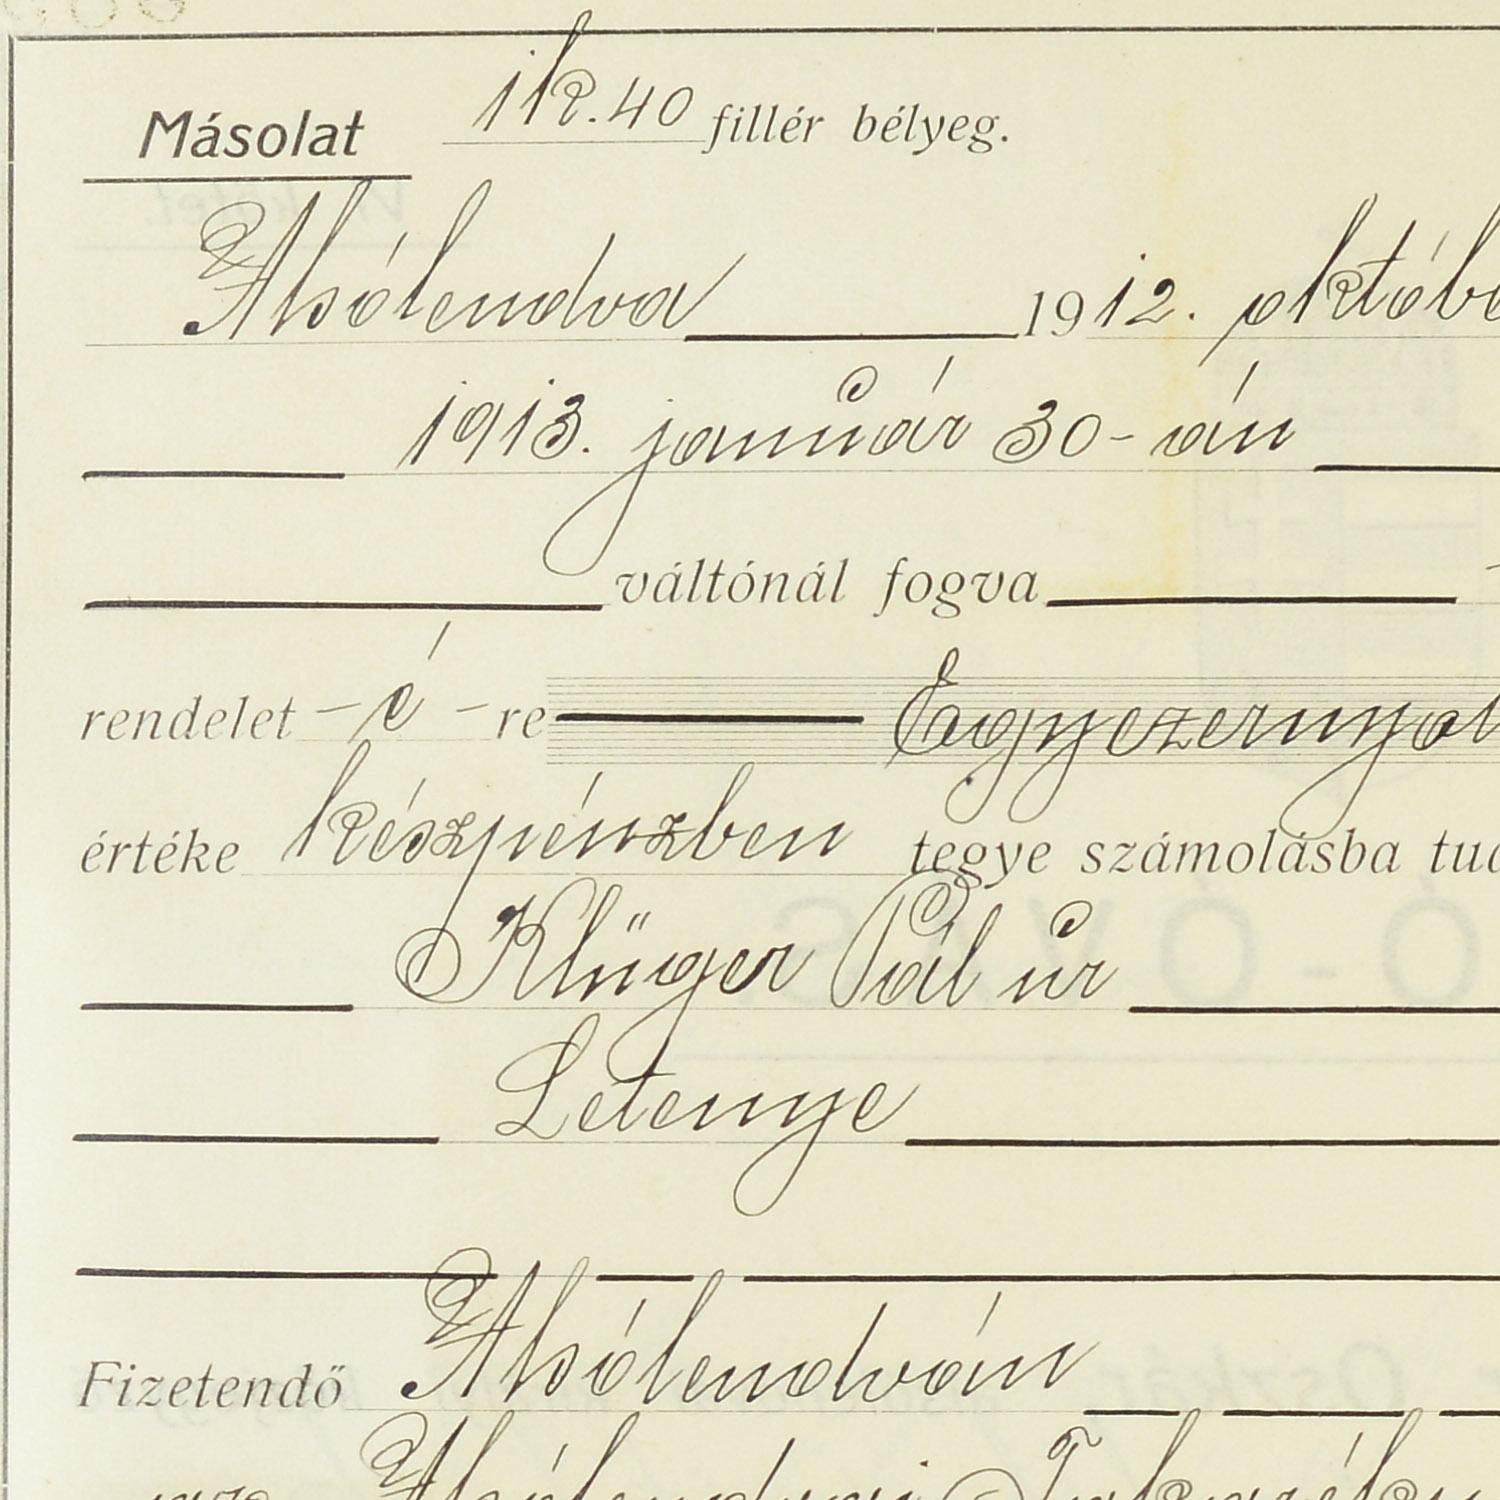 Másolat 1 k. 40 fillér bélyeg.
Alsólendva 1912. októbe
1913. január 30-án
váltónál fogva
rendelet - é - re Egyezernyol
értéke készpénzben tegye számolásba tud
Klüger Pál úr
Letenye
Fizetendő Alsólendván
Alsólendvai Takaréku